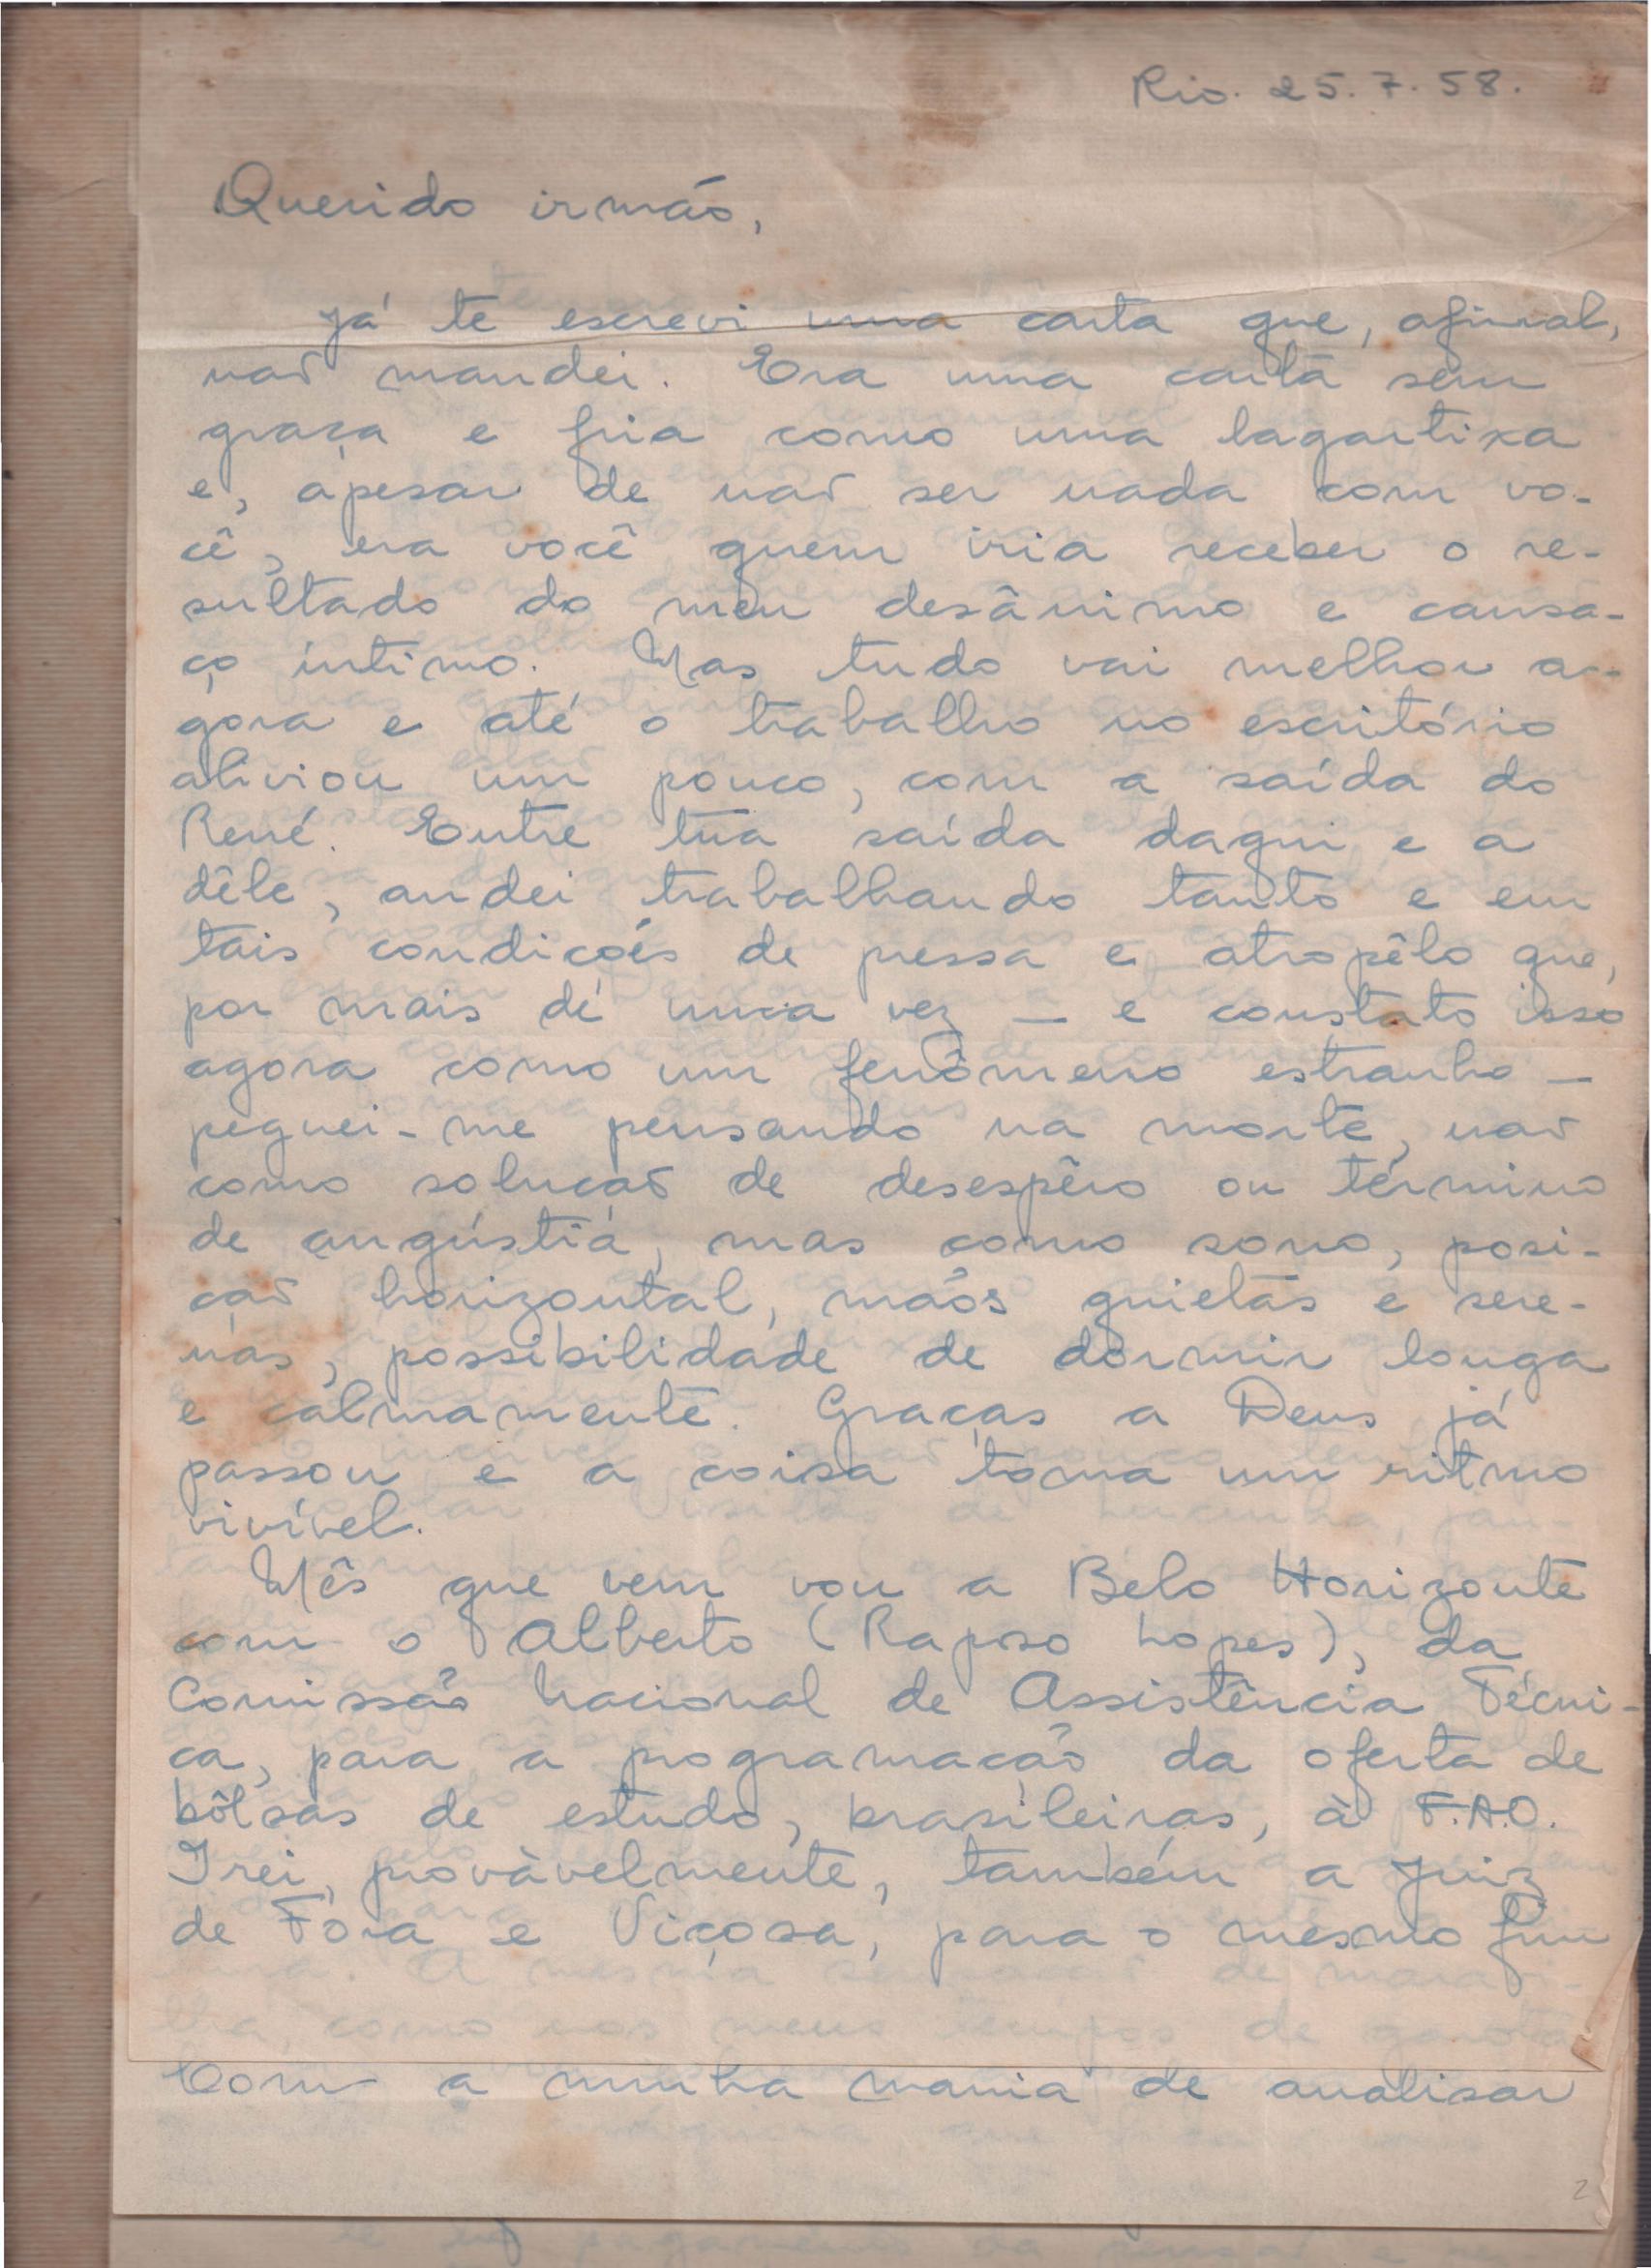 Rio. 25.7.58.
Querido irmão,
Já te escrevi uma carta que, afinal,
não mandei. Era uma carta sem
graça e fria como uma lagartixa
e, apesar de não ser nada com vo-
cê, era você quem iria receber o re-
sultado do meu desânimo e cansa-
ço íntimo. Mas tudo vai melhor a-
gora e até o trabalho no escritório
aliviou um pouco, com a saída do
René. Entre tua saída daqui e a
dêle, andei trabalhando tanto e em
tais condições de pressa e atropêlo que,
por mais de uma vez — e constato isso
agora como um fenômeno estranho —
peguei-me pensando na morte, não
como solução de desespêro ou término
de angústia, mas como sono, posi-
ção horizontal, mãos quietas e sere-
nas, possibilidade de dormir longa
e calmamente. Graças a Deus já
passou e a coisa toma um ritmo
vivível.
Mês que vem vou a Belo Horizonte
com o Alberto (Raposo Lopes), da
Comissão Nacional de Assistência Técni-
ca, para a programação da oferta de
bôlsas de estudo, brasileiras, à F.A.O.
Irei, provàvelmente, também a Juiz
de Fora e Viçosa, para o mesmo fim
Com a minha mania de analisar
2